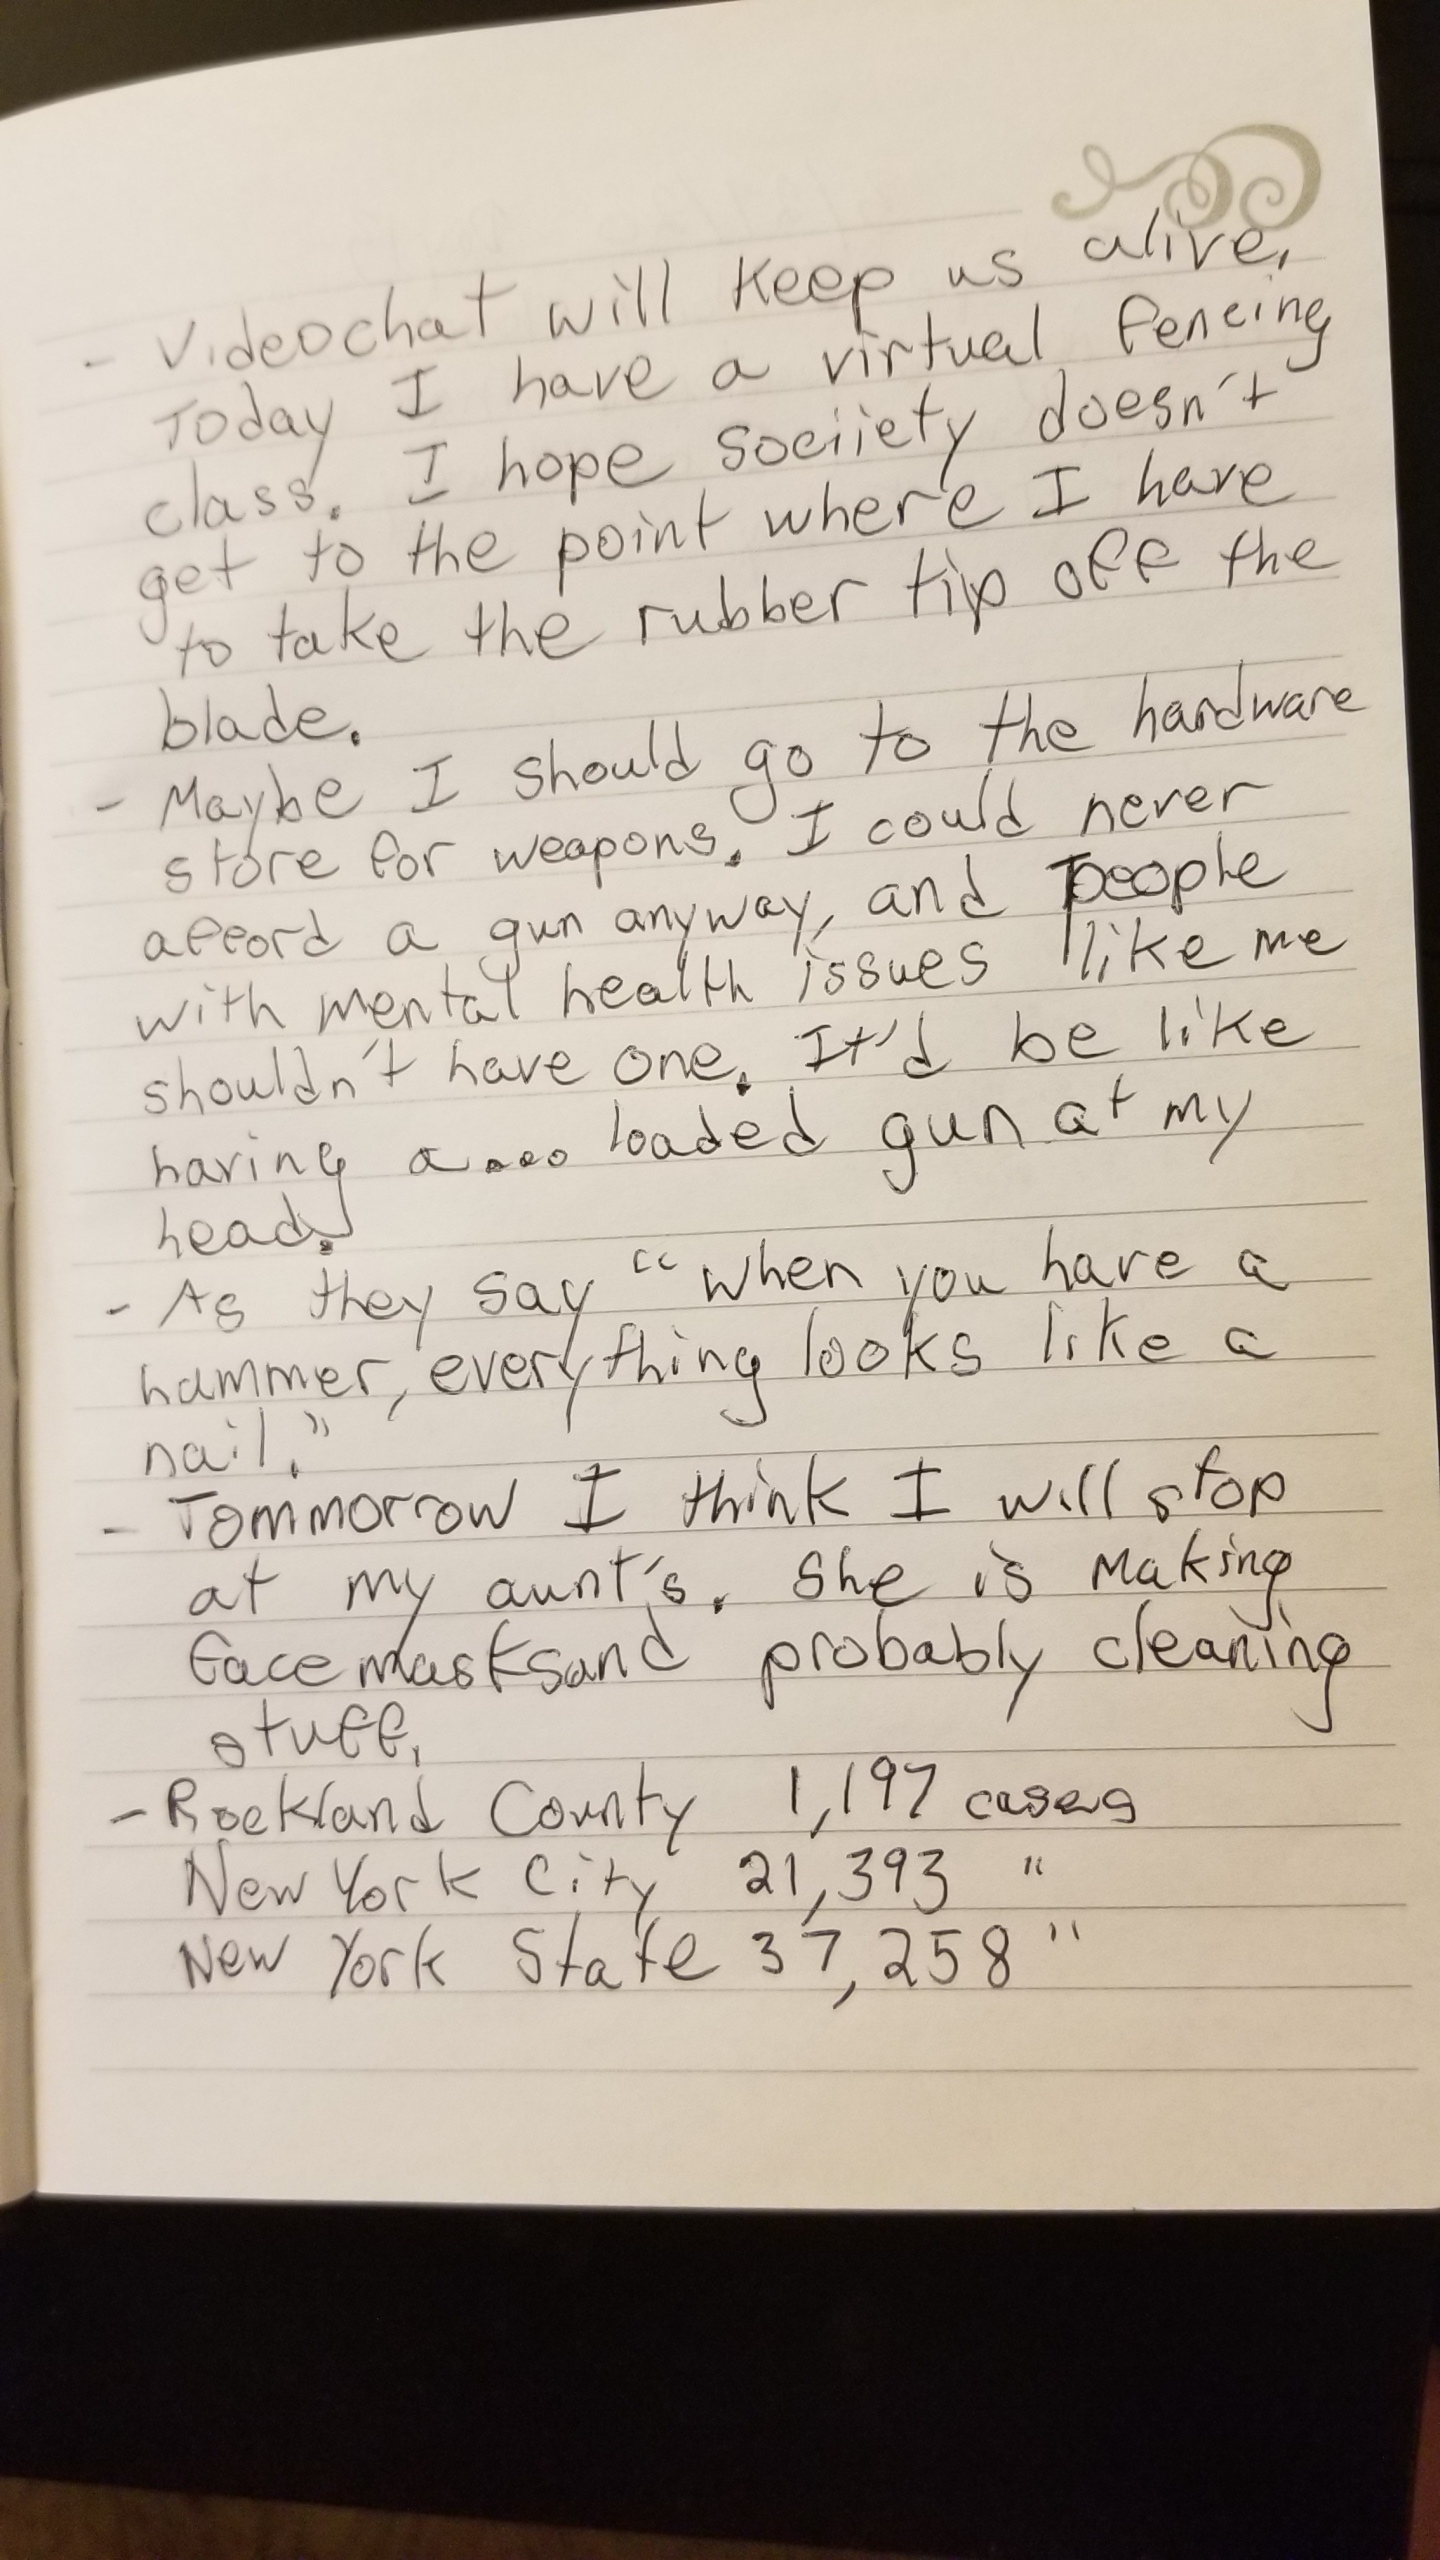 - Videochat will keep us alive.
Today I have a virtual fencing
class. I hope sociiety doesn't
get to the point where I have
to take the rubber tip off the
blade.
- Maybe I should go to the hardware
store for weapons. I could never
afford a gun anyway, and people
with mental health issues like me
shouldn't have one. It'd be like
having a.... loaded gun at my
head.
- As they say "when you have a
hammer, everything looks like a
nail."
- Tommorrow I think I will stop
at my aunt's. She is making
facemasksand probably cleaning
stuff.
- Rockland County 1,197 cases
New York City 21,393 "
New York State 37,258 "